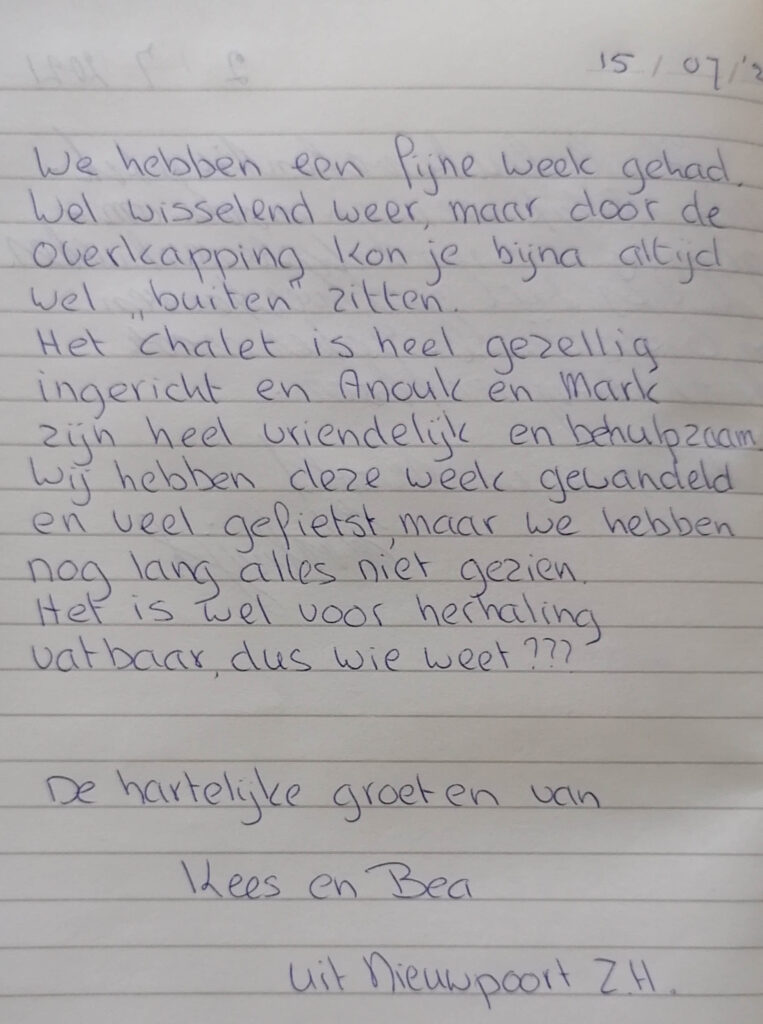 15 / 07 / '2
We hebben een fijne week gehad.
Wel wisselend weer, maar door de
overkapping kon je bijna altijd
wel „buiten" zitten.
Het chalet is heel gezellig
ingericht en Anouk en Mark
zijn heel vriendelijk en behulpzaam
Wij hebben deze week gewandeld
en veel gefietst, maar we hebben
nog lang alles niet gezien.
Het is wel voor herhaling
vatbaar, dus wie weet???
De hartelijke groeten van
Kees en Bea
uit Nieuwpoort Z.H.